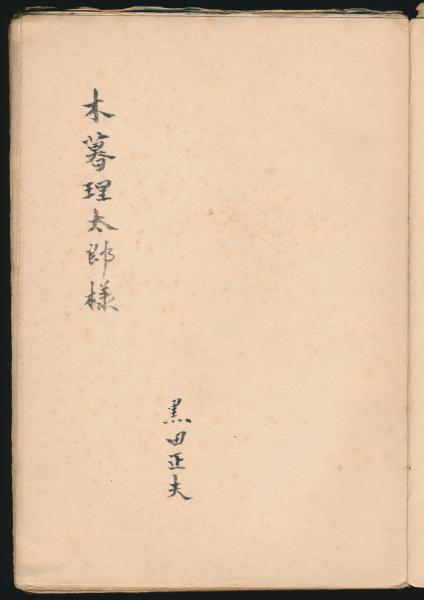 木暮理太郎様
黒田正夫